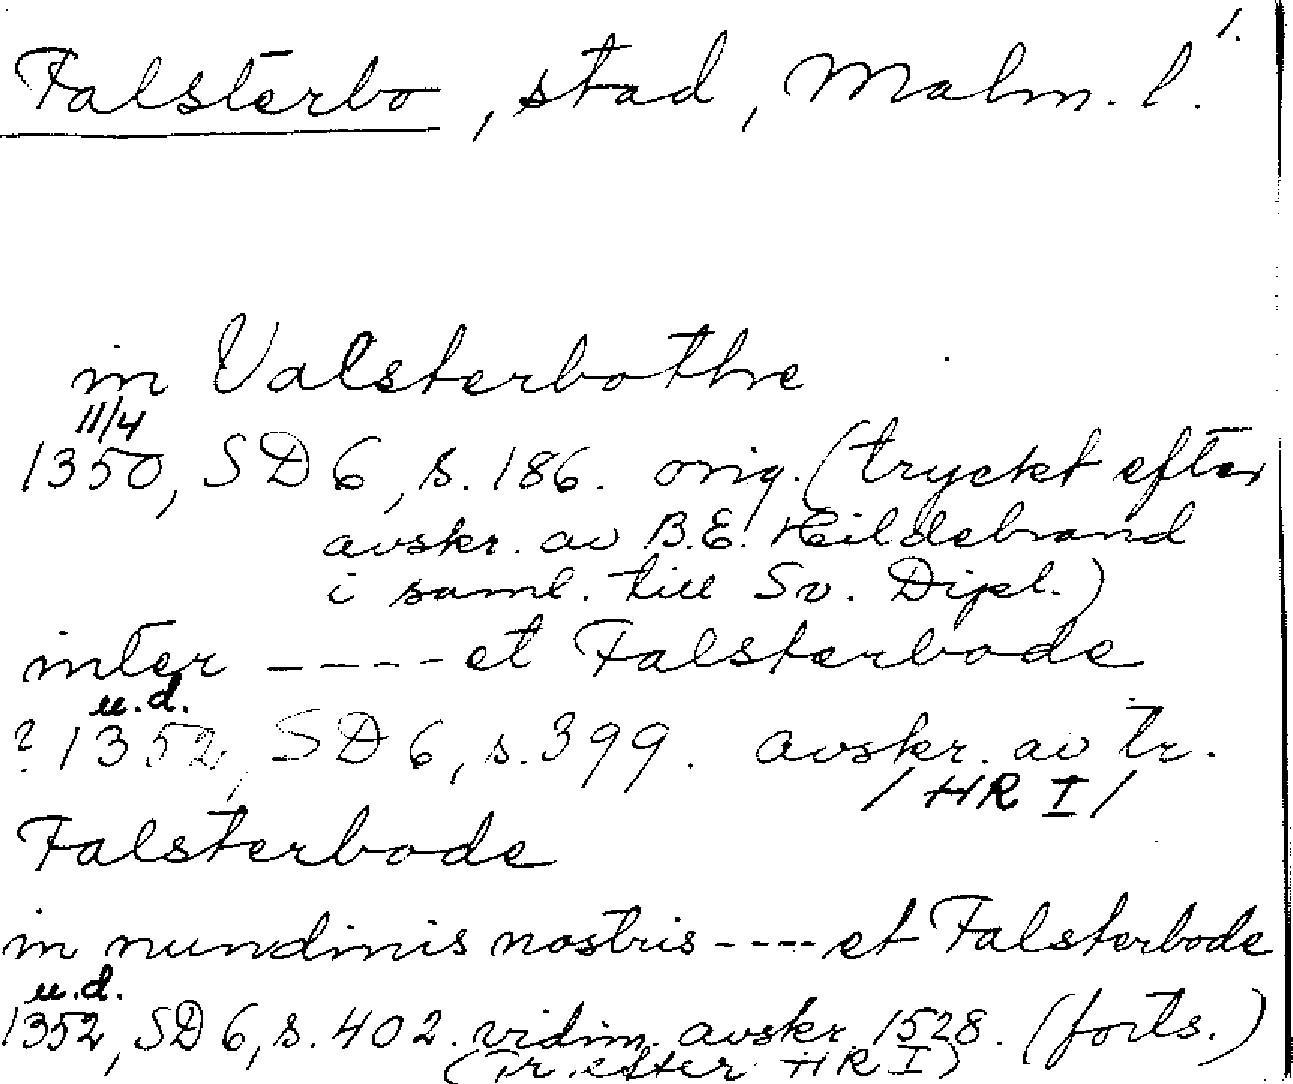 1.
Falsterbo, stad, Malm. l.
in Valsterbothe
11/4
1350, SD 6, s. 186. orig. (tryckt efter
avskr. av B.E. Heildebrand
i saml. till Sv. Dipl.)
inter ---- et Falsterbode
u.d.
? 1352, SD 6, s. 399. avskr. av tr.
/ HR I /
Falsterbode
in nundinis nostris ---- et Falsterbode
u.d.
1352, SD 6, s. 402. vidim. avskr. 1528. (forts.)
(Tr. efter HR I)